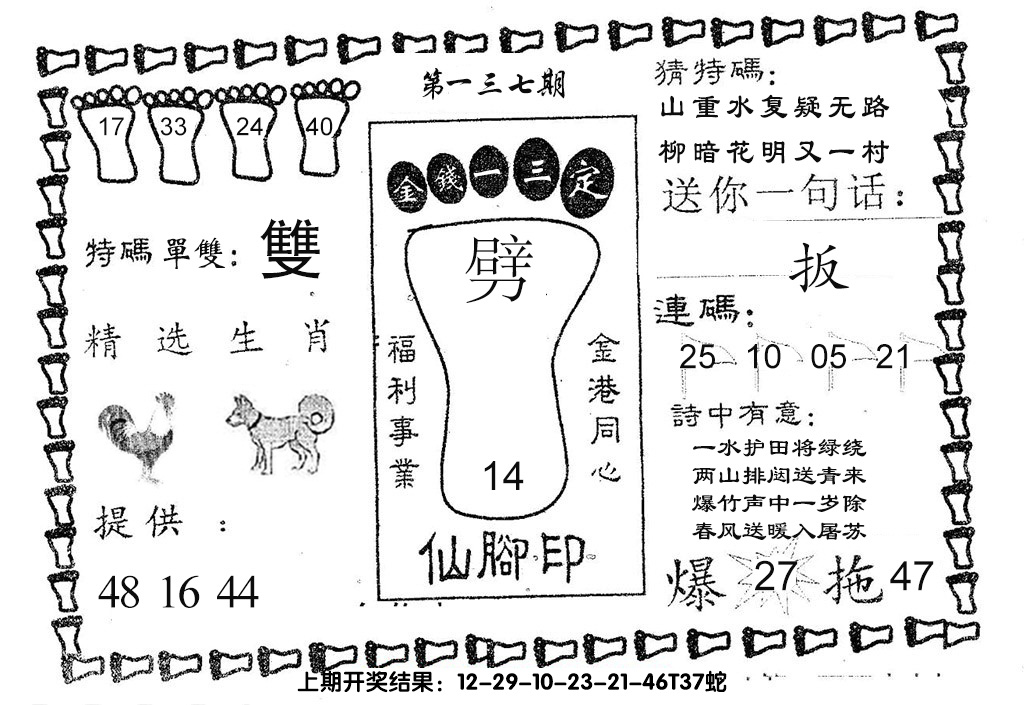 第一三七期
17 33 24 40
特碼單雙：雙
精选生肖
提供：
48 16 44
金錢一三定
劈
福利事業
金港同心
14
仙腳印
猜特碼：
山重水复疑无路
柳暗花明又一村
送你一句话：
扳
連碼：
25 10 05 21
詩中有意：
一水护田将绿绕
两山排闼送青来
爆竹声中一岁除
春风送暖入屠苏
爆 27 拖 47
上期开奖结果：12-29-10-23-21-46T37蛇